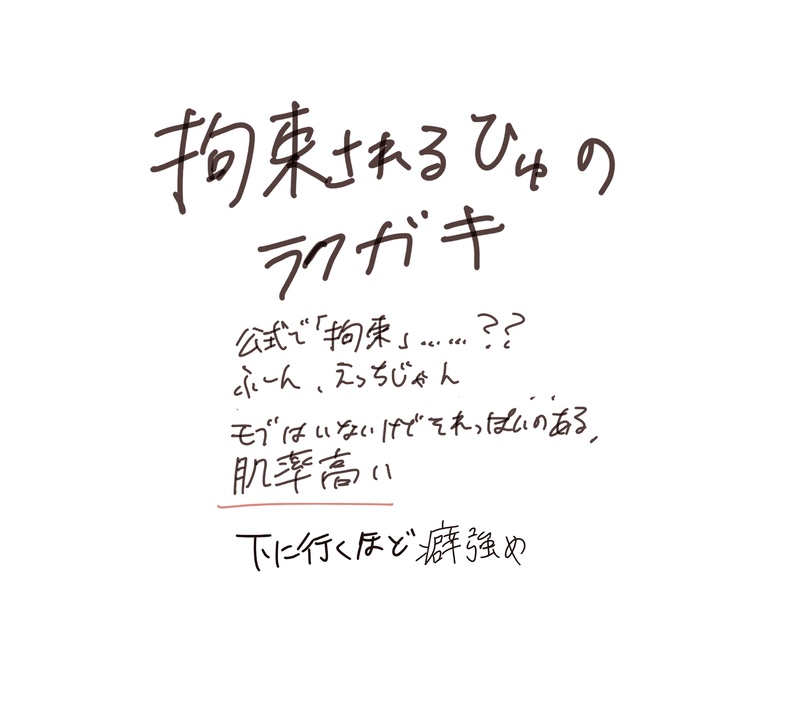 拘束されるひゅの
ラクガキ
公式で「拘束」……??
ふーん、えっちじゃん
モブはいないけどそれっぽいのある、
肌率高い
下に行くほど癖強め